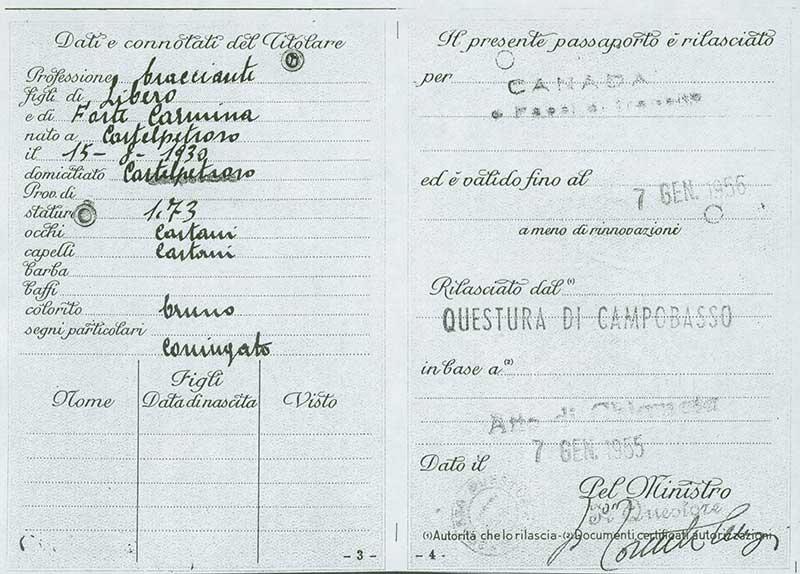 Dati e connotati del Titolare
Professione bracciante
figli di Libero
e di Forte Carmina
nato a Castelpetroso
il 15-8-1930
domiciliato Castelpetroso
Prov. di
statura 1.73
occhi Castani
capelli Castani
barba
baffi
colorito bruno
segni particolari
Coniugato
Figli
Nome Data di nascita Visto
- 3 -
Il presente passaporto è rilasciato
per CANADA
e Paesi di transito
ed è valido fino al 7 GEN. 1956
a meno di rinnovazione
Rilasciato dal (1)
QUESTURA DI CAMPOBASSO
in base a (2)
Atto di Chiamata
Dato il 7 GEN. 1955
Pel Ministro
Questore
(1) Autorità che lo rilascia - (2) Documenti certificati autorizzazioni
- 4 -